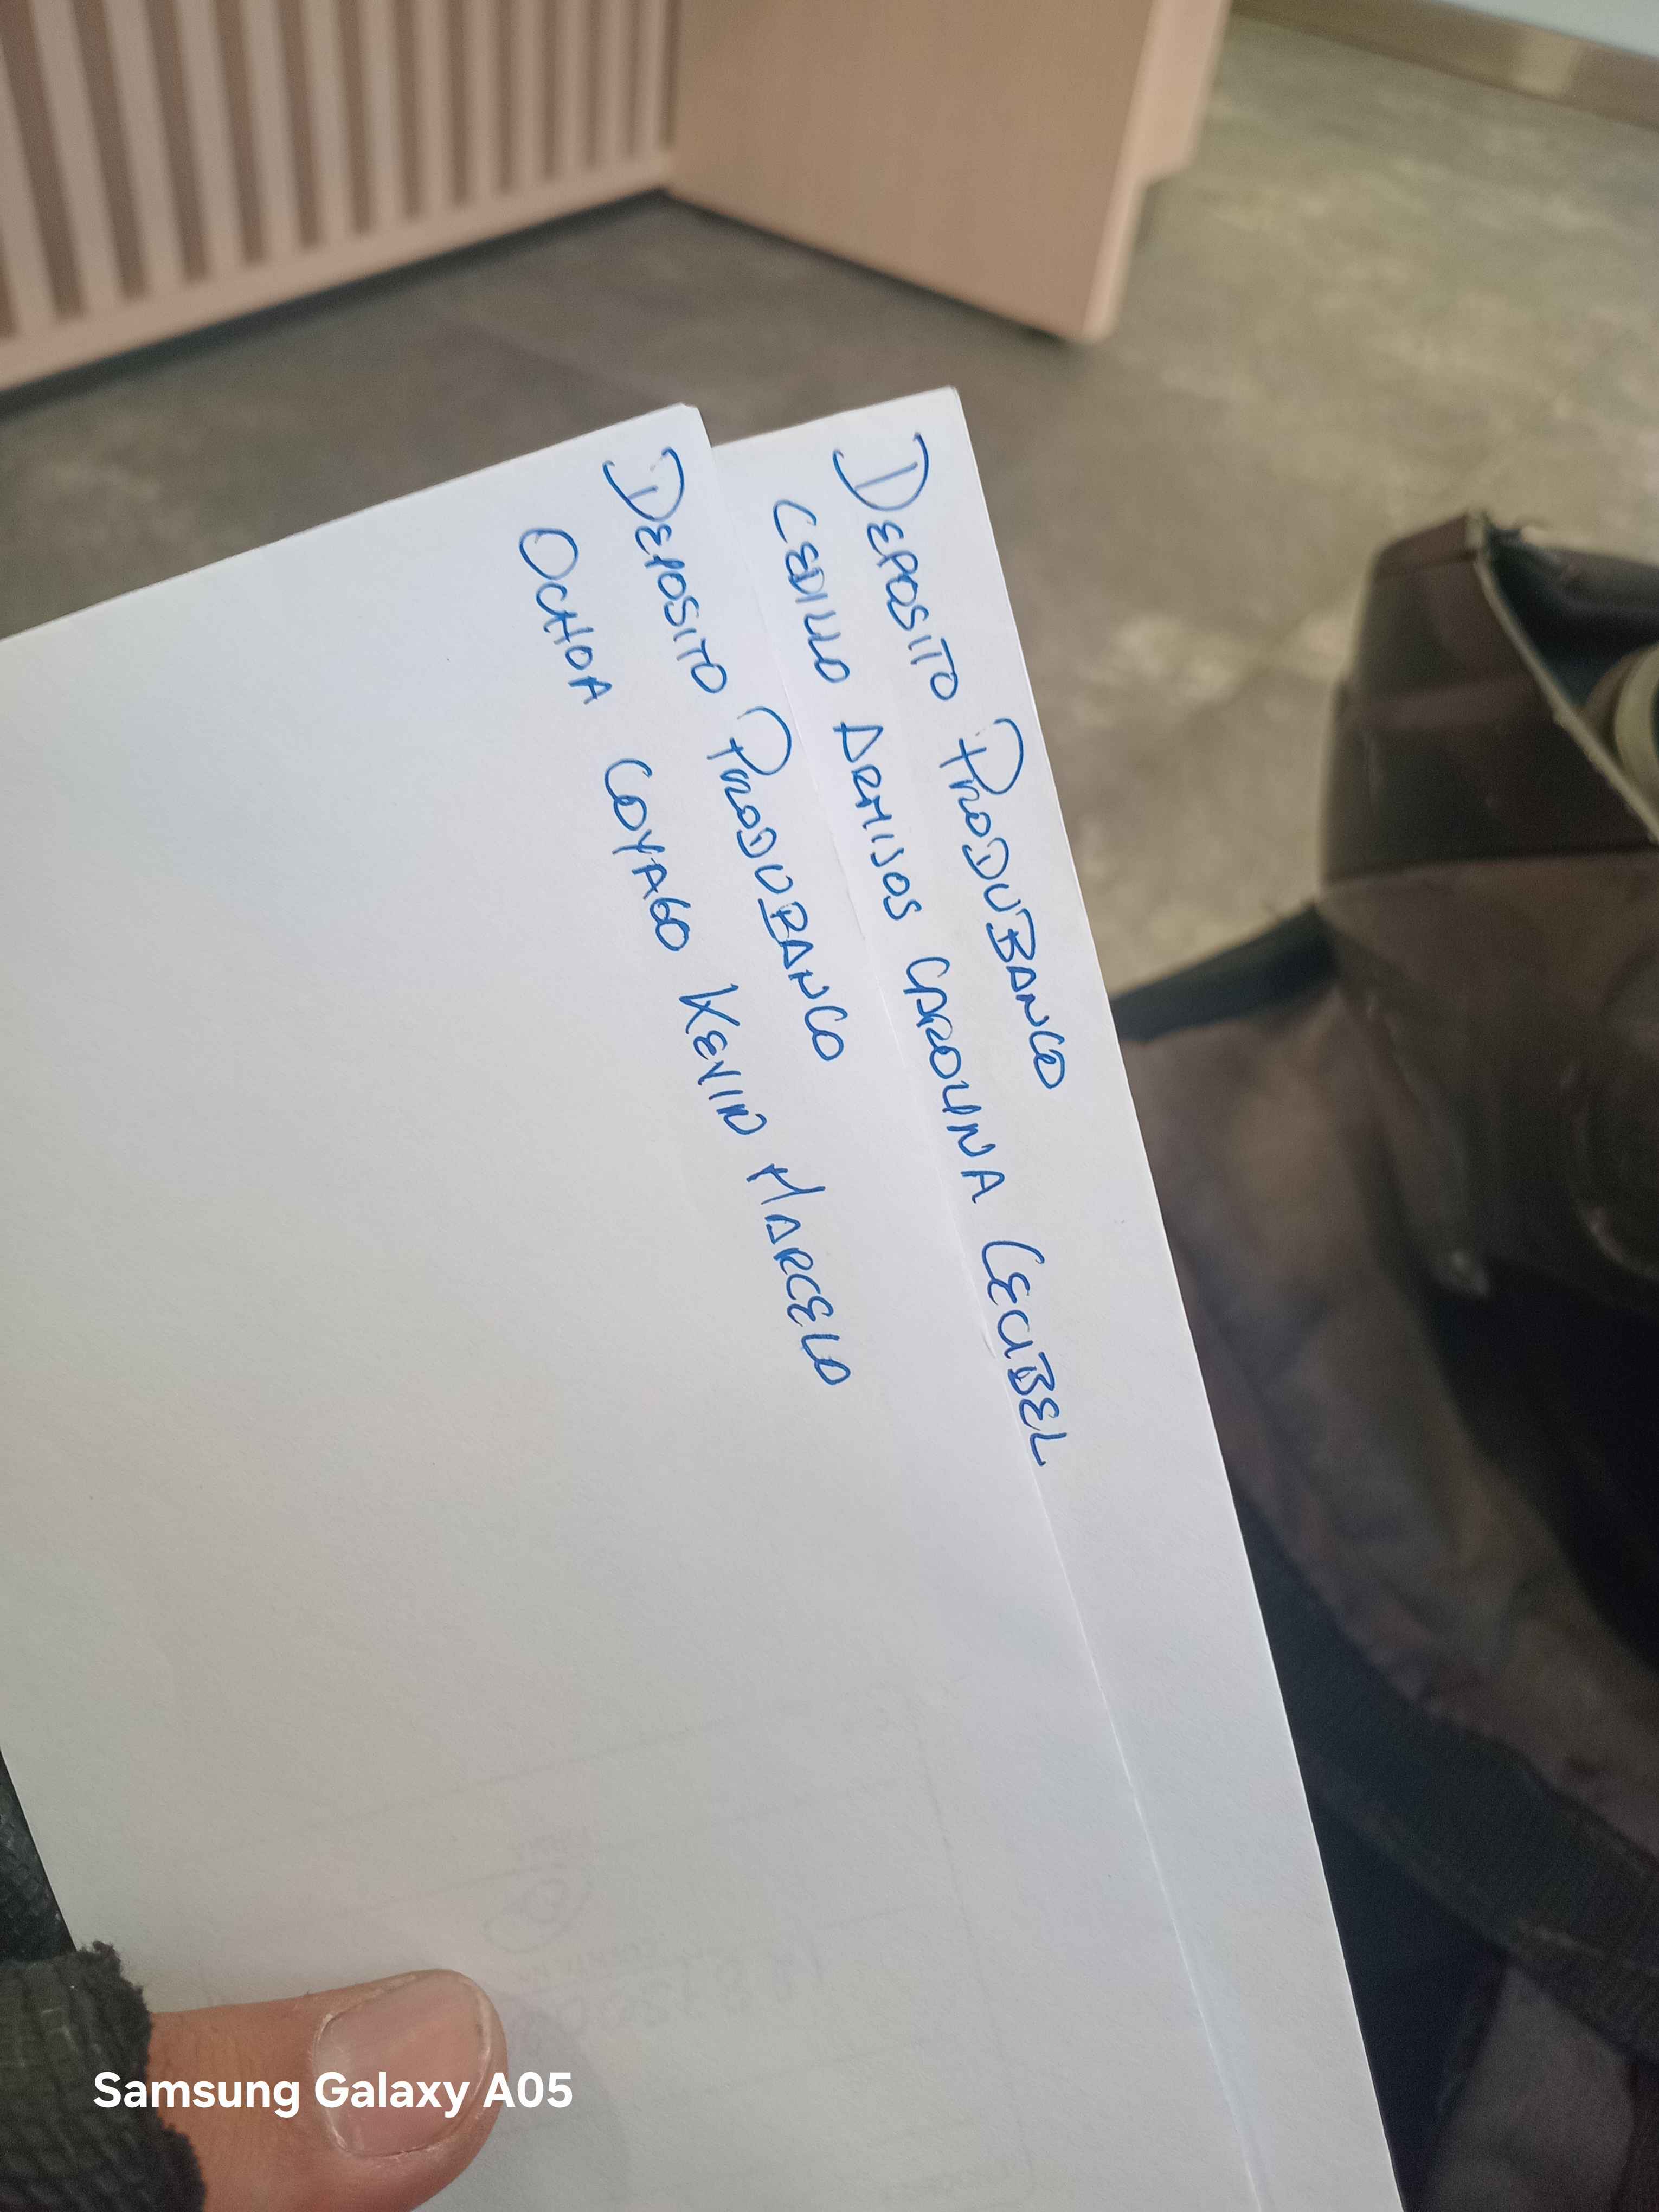 DEPOSITO PRODUBANCO
CEDILLO ARMIJOS CAROLINA CECIBEL
DEPOSITO PRODUBANCO
OCHOA COYAGO KEVIN MARCELO
Samsung Galaxy A05